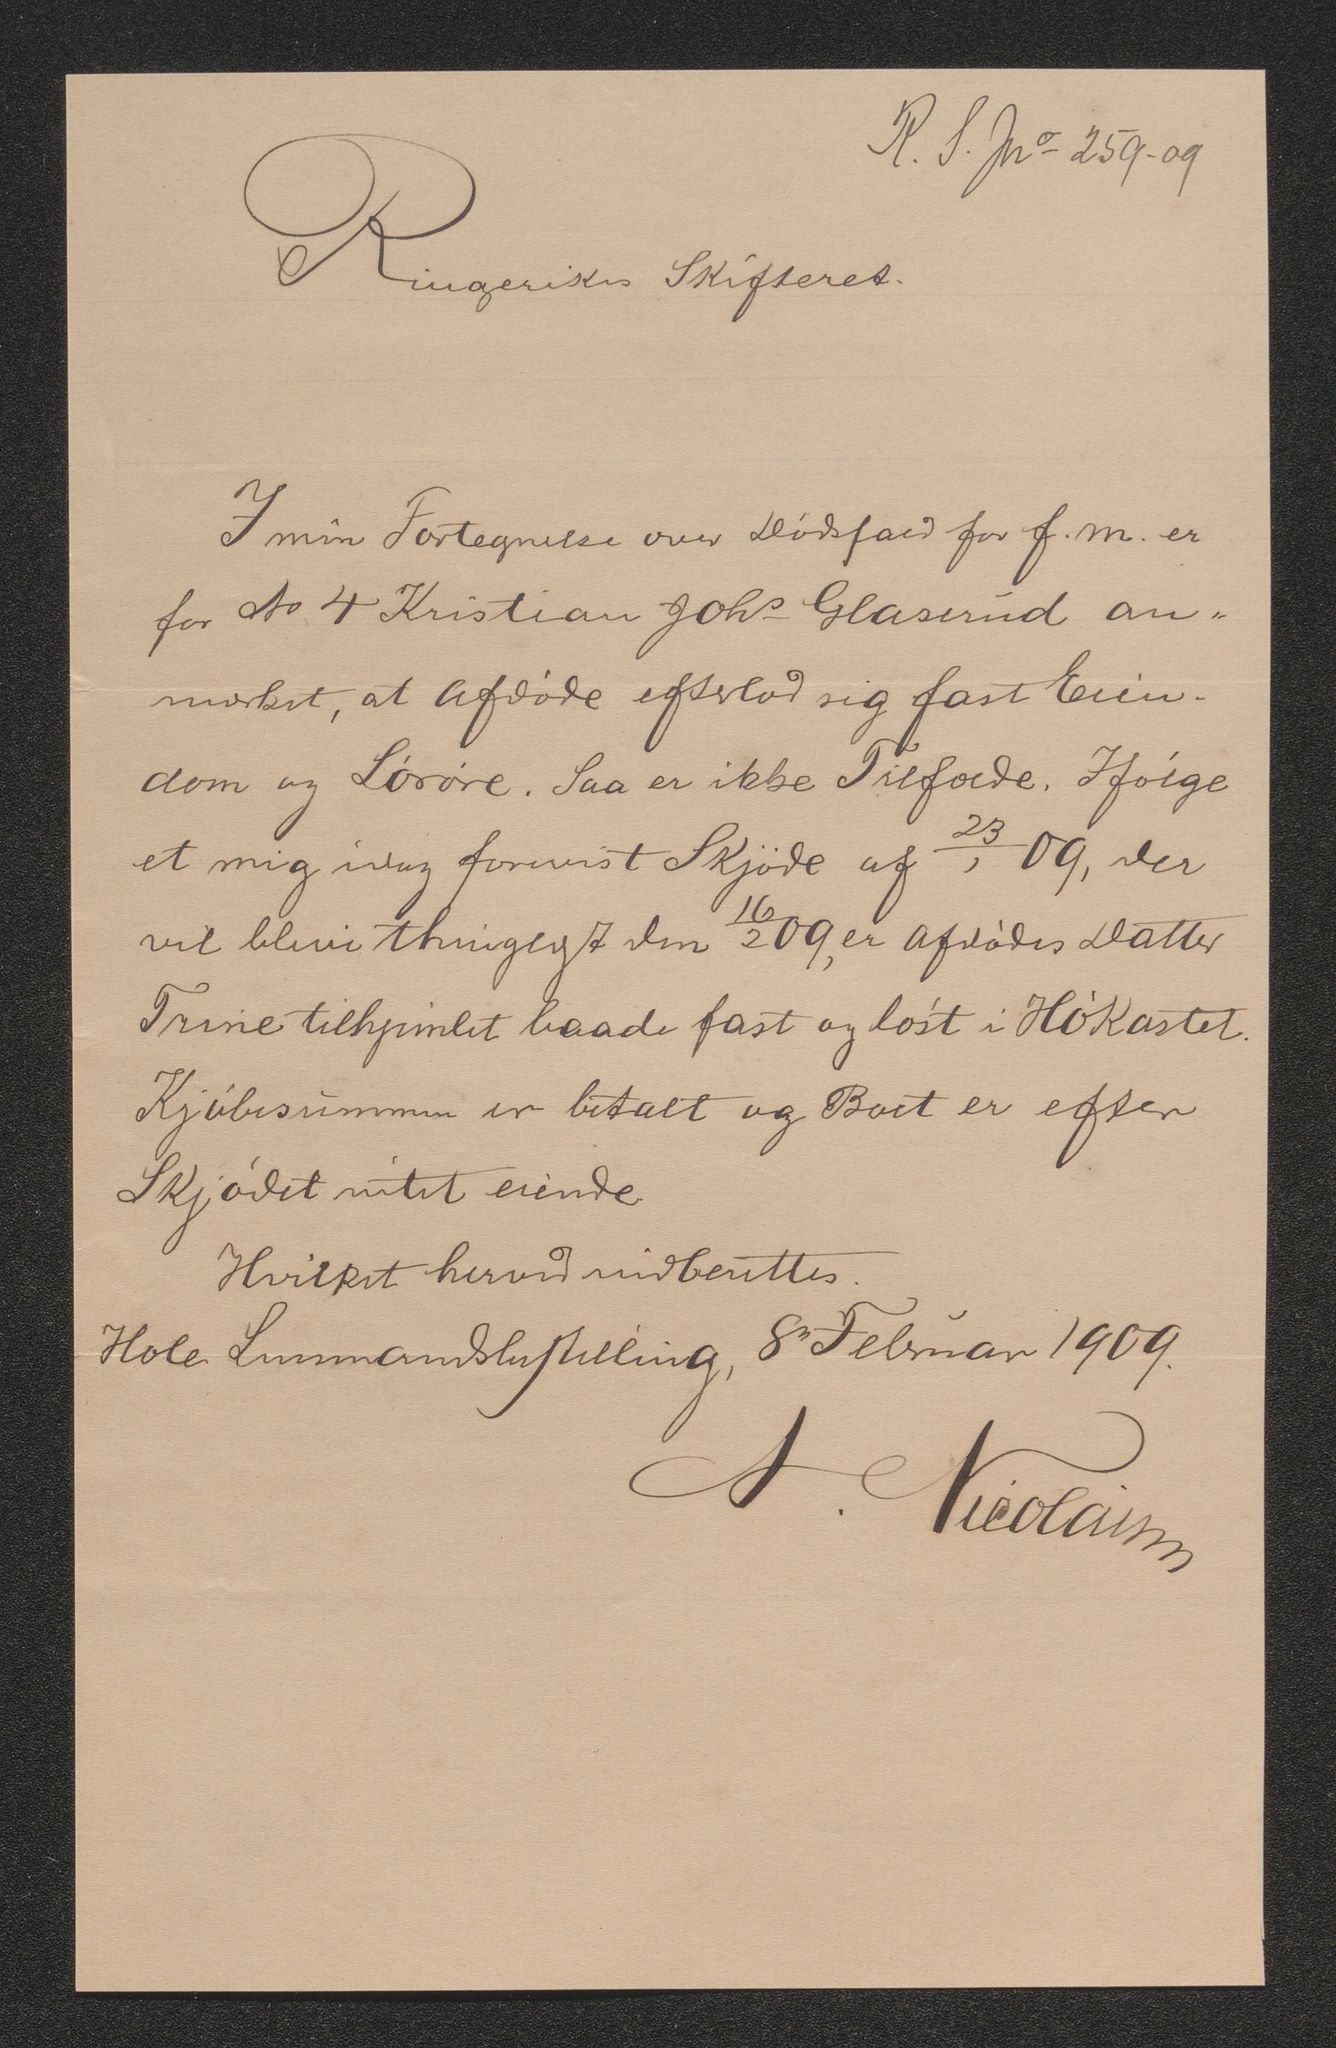 R. S. Jno 259-09
Ringerikes Skifteret.
I min Fortegnelse over Dödsfald for f. m. er
for No 4 Kristian Johs Glaserud an-
merket, at Afdöde efterlod sig fast Eien-
dom og Lösöre. Saa er ikke Tilfælde. Ifölge
et mig idag forevist Skjöde af 23/1 09, der
vil blive thinglyst den 16/2 09, er Afdödes Datter
Trine tilhjemlet baade fast og löst i Hökastet.
Kjöbesummen er betalt og Boet er efter
Skjödet intet eiende.
Hvilket herved indberettes.
Hole Lensmandsbestilling, 8 Februar 1909.
A. Nicolaisen